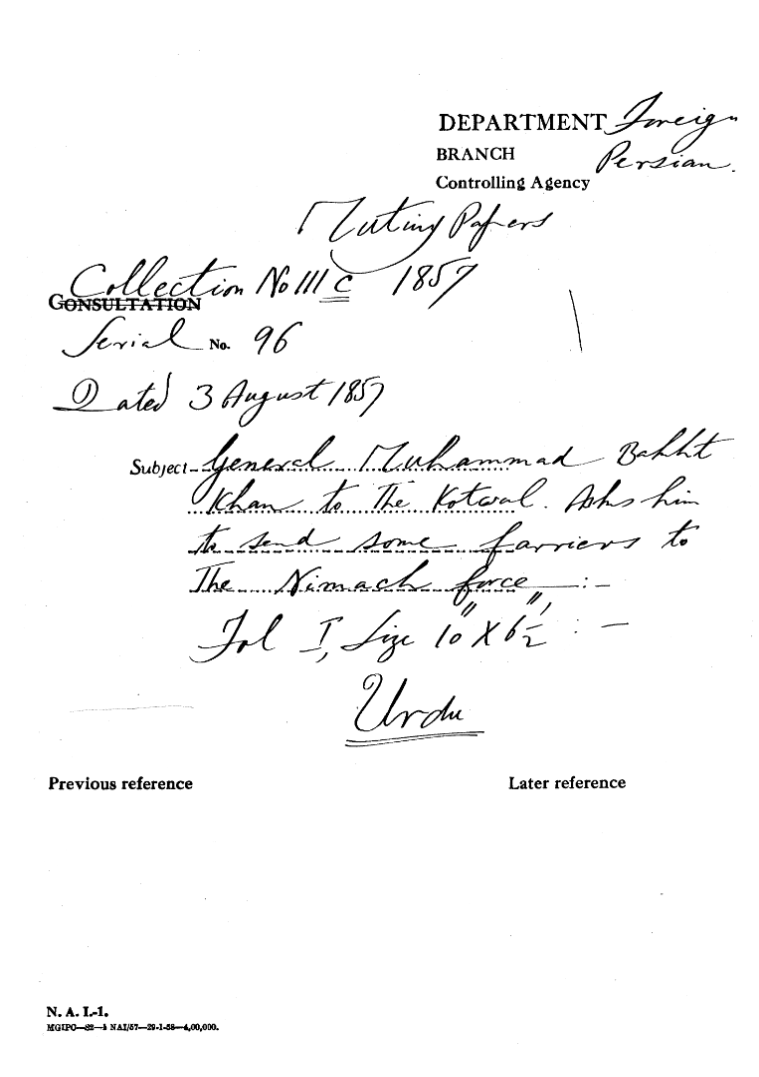 DEPARTMENT Foreign
BRANCH Persian.
Controlling Agency
Mutiny Papers
Collection No III C 1857
CONSULTATION
Serial No. 96
Dated 3 August 1857
Subject General Muhammad Bakht
Khan to The Kotwal. Asks him
to send some farriers to
The Nimach force :-
Fol I, Size 10" X 6½" : -
Urdu
Previous reference
Later reference
N. A. I.-1.
MGIPO—82—5 NAI/57—29-1-58—4,00,000.